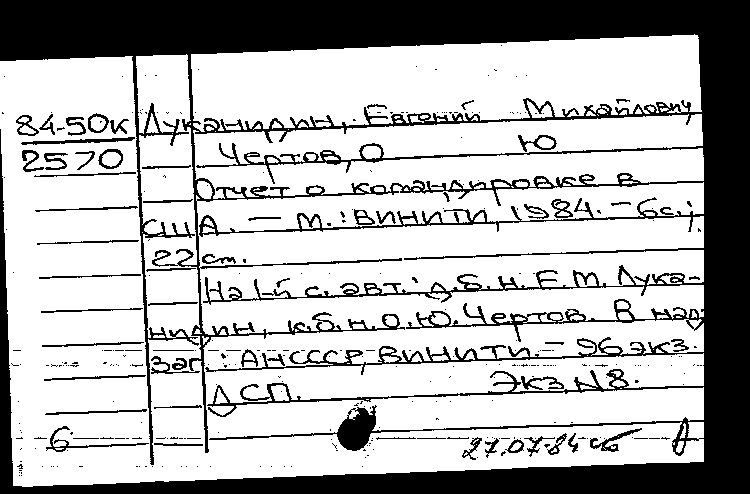 84-50к Луканидин, Евгений Михайлович
2570 Чертов, О Ю
Отчет о командировке в
США. — М.: ВИНИТИ, 1984. — 6с.;
22 см.
На 1-й с. авт.: д.б.н. Е.М. Лука-
нидин, к.б.н. О.Ю. Чертов. В над-
заг.: АНСССР, ВИНИТИ. — 96 экз.
ДСП. Экз. №8.
6 27.07.84